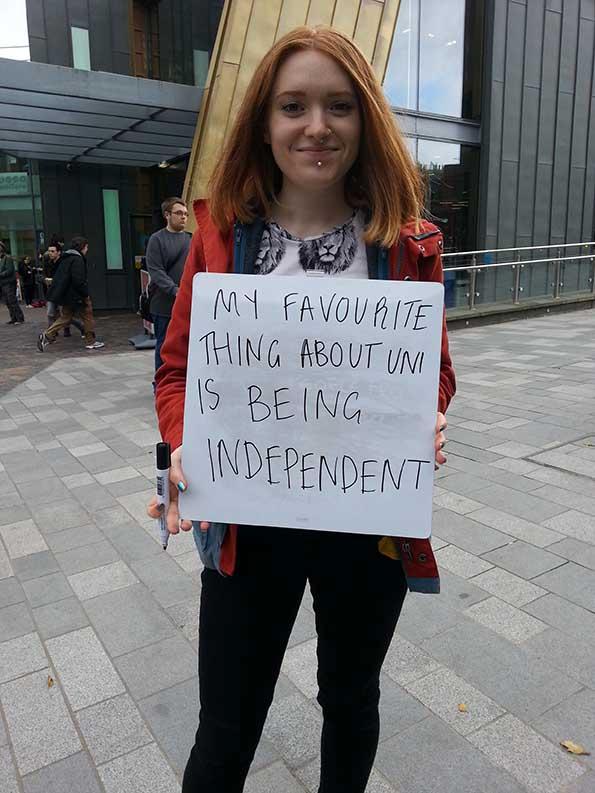 MY FAVOURITE
THING ABOUT UNI
IS BEING
INDEPENDENT